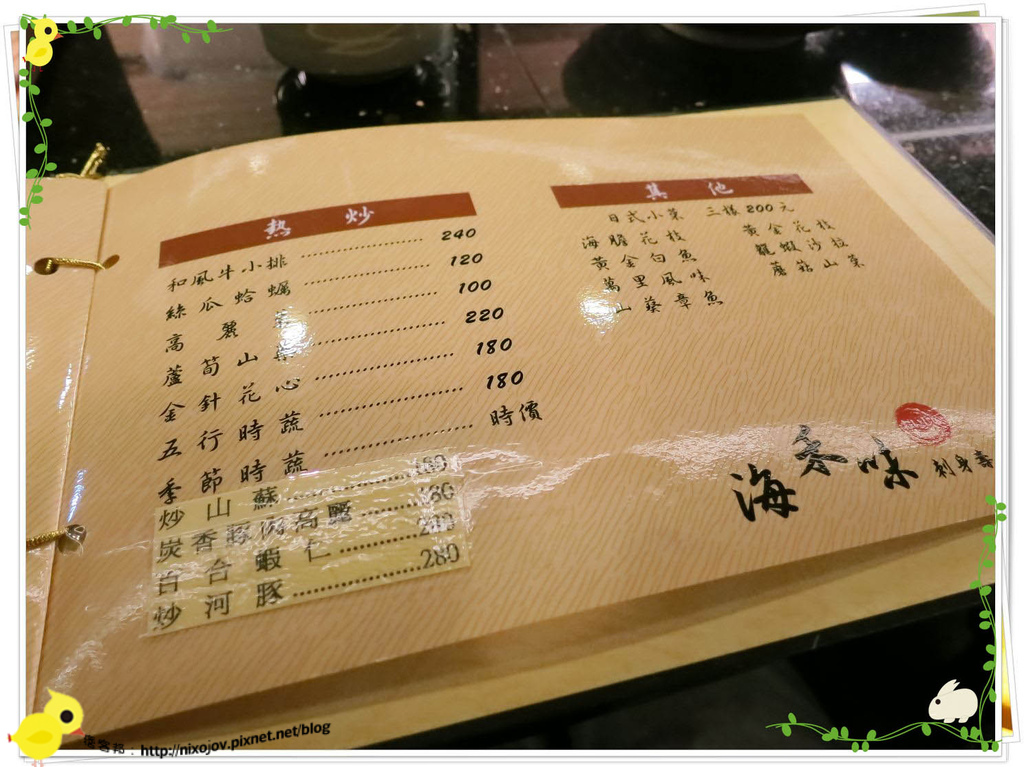 熱炒
和風牛小排 240
絲瓜蛤蠣 120
高麗菜 100
蘆筍山藥 220
金針花心 180
五行時蔬 180
季節時蔬 時價
炒山蘇 180
炭香豚肉高麗 180
百合蝦仁
炒河豚 280
其他
日式小菜 三樣200元
海膽花枝 黃金花枝
黃金白魚 龍蝦沙拉
萬里風味 蘑菇山菜
山葵章魚
海峇味 刺身壽
痞客邦：http://nixojov.pixnet.net/blog